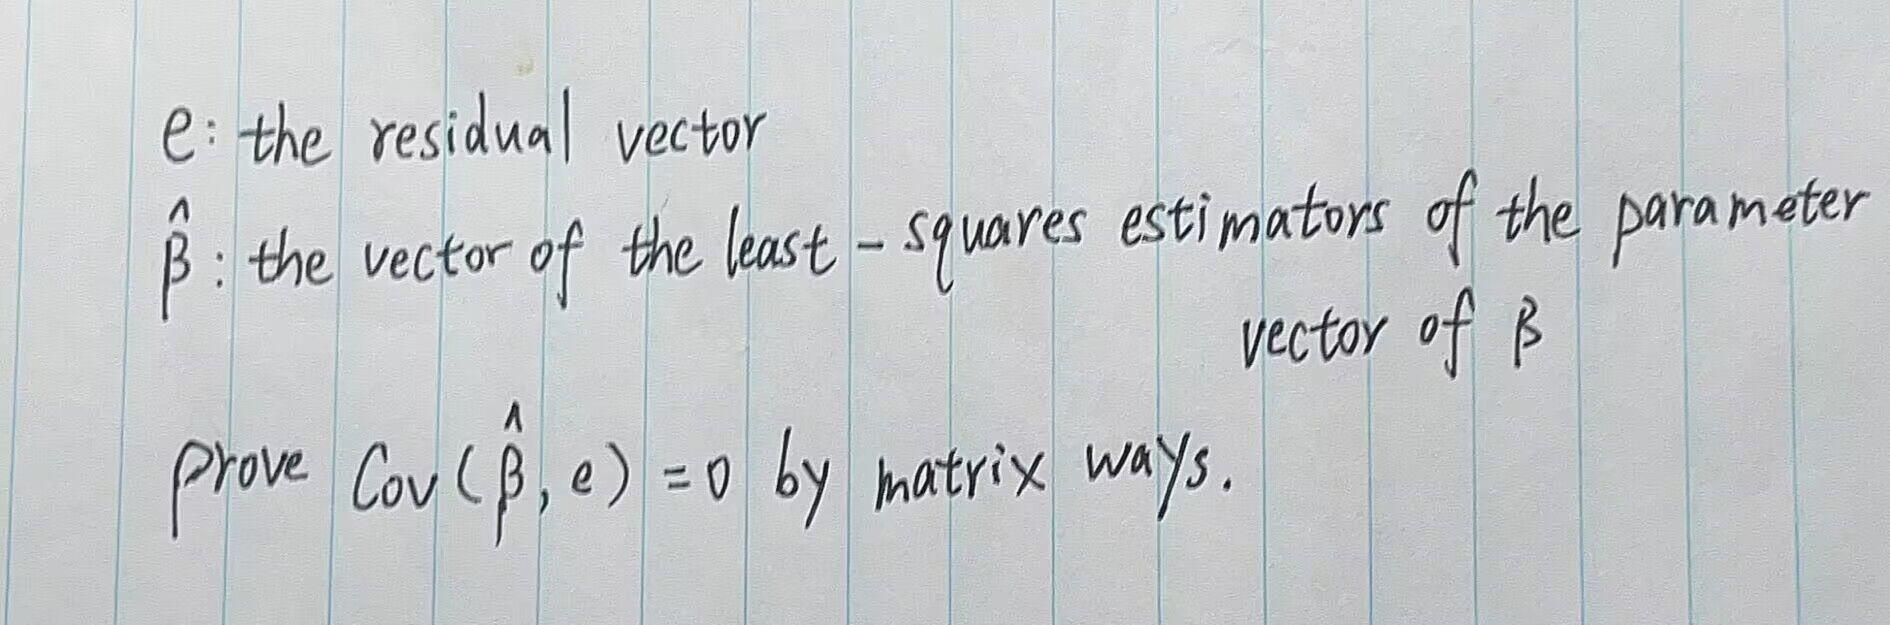 e: the residual vector
β̂: the vector of the least-squares estimators of the parameter
vector of β
prove Cov(β̂, e) = 0 by matrix ways.